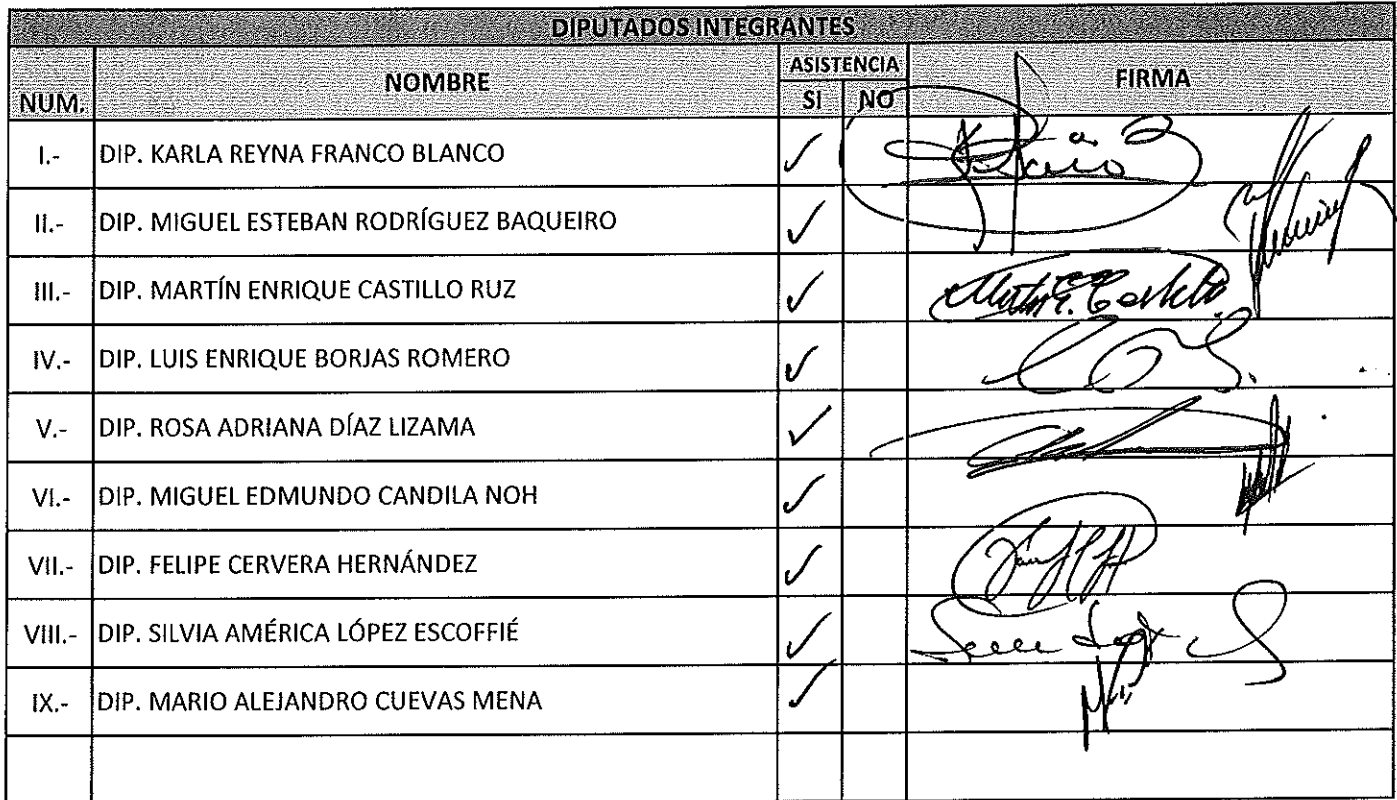 DIPUTADOS INTEGRANTES
NUM. NOMBRE ASISTENCIA FIRMA
SI NO
I.- DIP. KARLA REYNA FRANCO BLANCO ✓
II.- DIP. MIGUEL ESTEBAN RODRÍGUEZ BAQUEIRO ✓
III.- DIP. MARTÍN ENRIQUE CASTILLO RUZ ✓
IV.- DIP. LUIS ENRIQUE BORJAS ROMERO ✓
V.- DIP. ROSA ADRIANA DÍAZ LIZAMA ✓
VI.- DIP. MIGUEL EDMUNDO CANDILA NOH ✓
VII.- DIP. FELIPE CERVERA HERNÁNDEZ ✓
VIII.- DIP. SILVIA AMÉRICA LÓPEZ ESCOFFIÉ ✓
IX.- DIP. MARIO ALEJANDRO CUEVAS MENA ✓